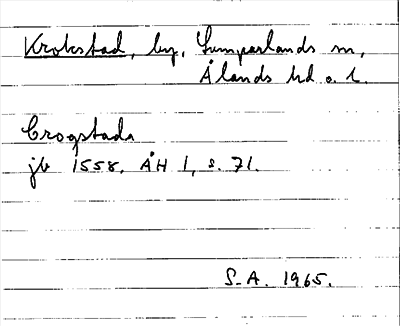 Krokstad, by, Lumparlands sn,
Ålands hd o. l.
Crogstada
jb 1558. ÅH 1, s. 71.
S-A. 1965.